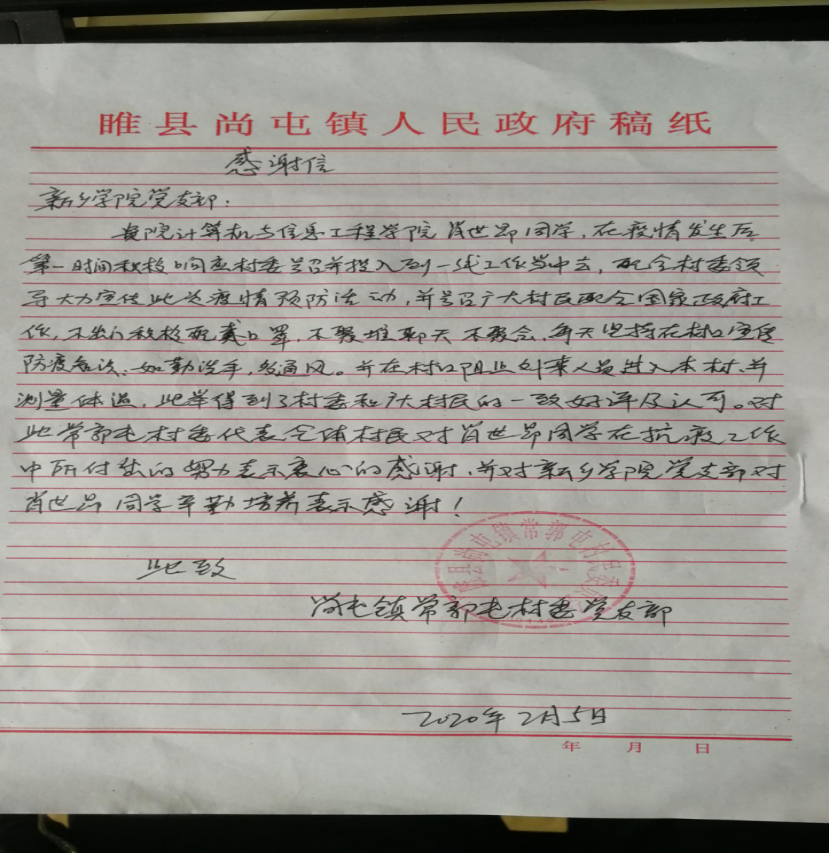 睢县尚屯镇人民政府稿纸
感谢信
新乡学院党支部:
贵院计算机与信息工程学院肖世昂同学,在疫情发生后,
第一时间积极响应村委号召并投入到一线工作当中去,配合村委领
导大力宣传此次疫情预防活动,并号召广大村民配合国家政府工
作,不出门积极配戴口罩,不聚堆聊天不聚会,每天坚持在村口宣传
防疫知识、如勤洗手,多通风。并在村口阻止外来人员进入本村、并
测量体温,此举得到了村委和广大村民的一致好评及认可。对
此常郭屯村委代表全体村民对肖世昂同学在抗疫工作
中所付出的努力表示衷心的感谢,并对新乡学院党支部对
肖世昂同学辛勤培养表示感谢!
此致
睢县尚屯镇常郭屯村民委员会
尚屯镇常郭屯村委党支部
2020年2月5日
年 月 日